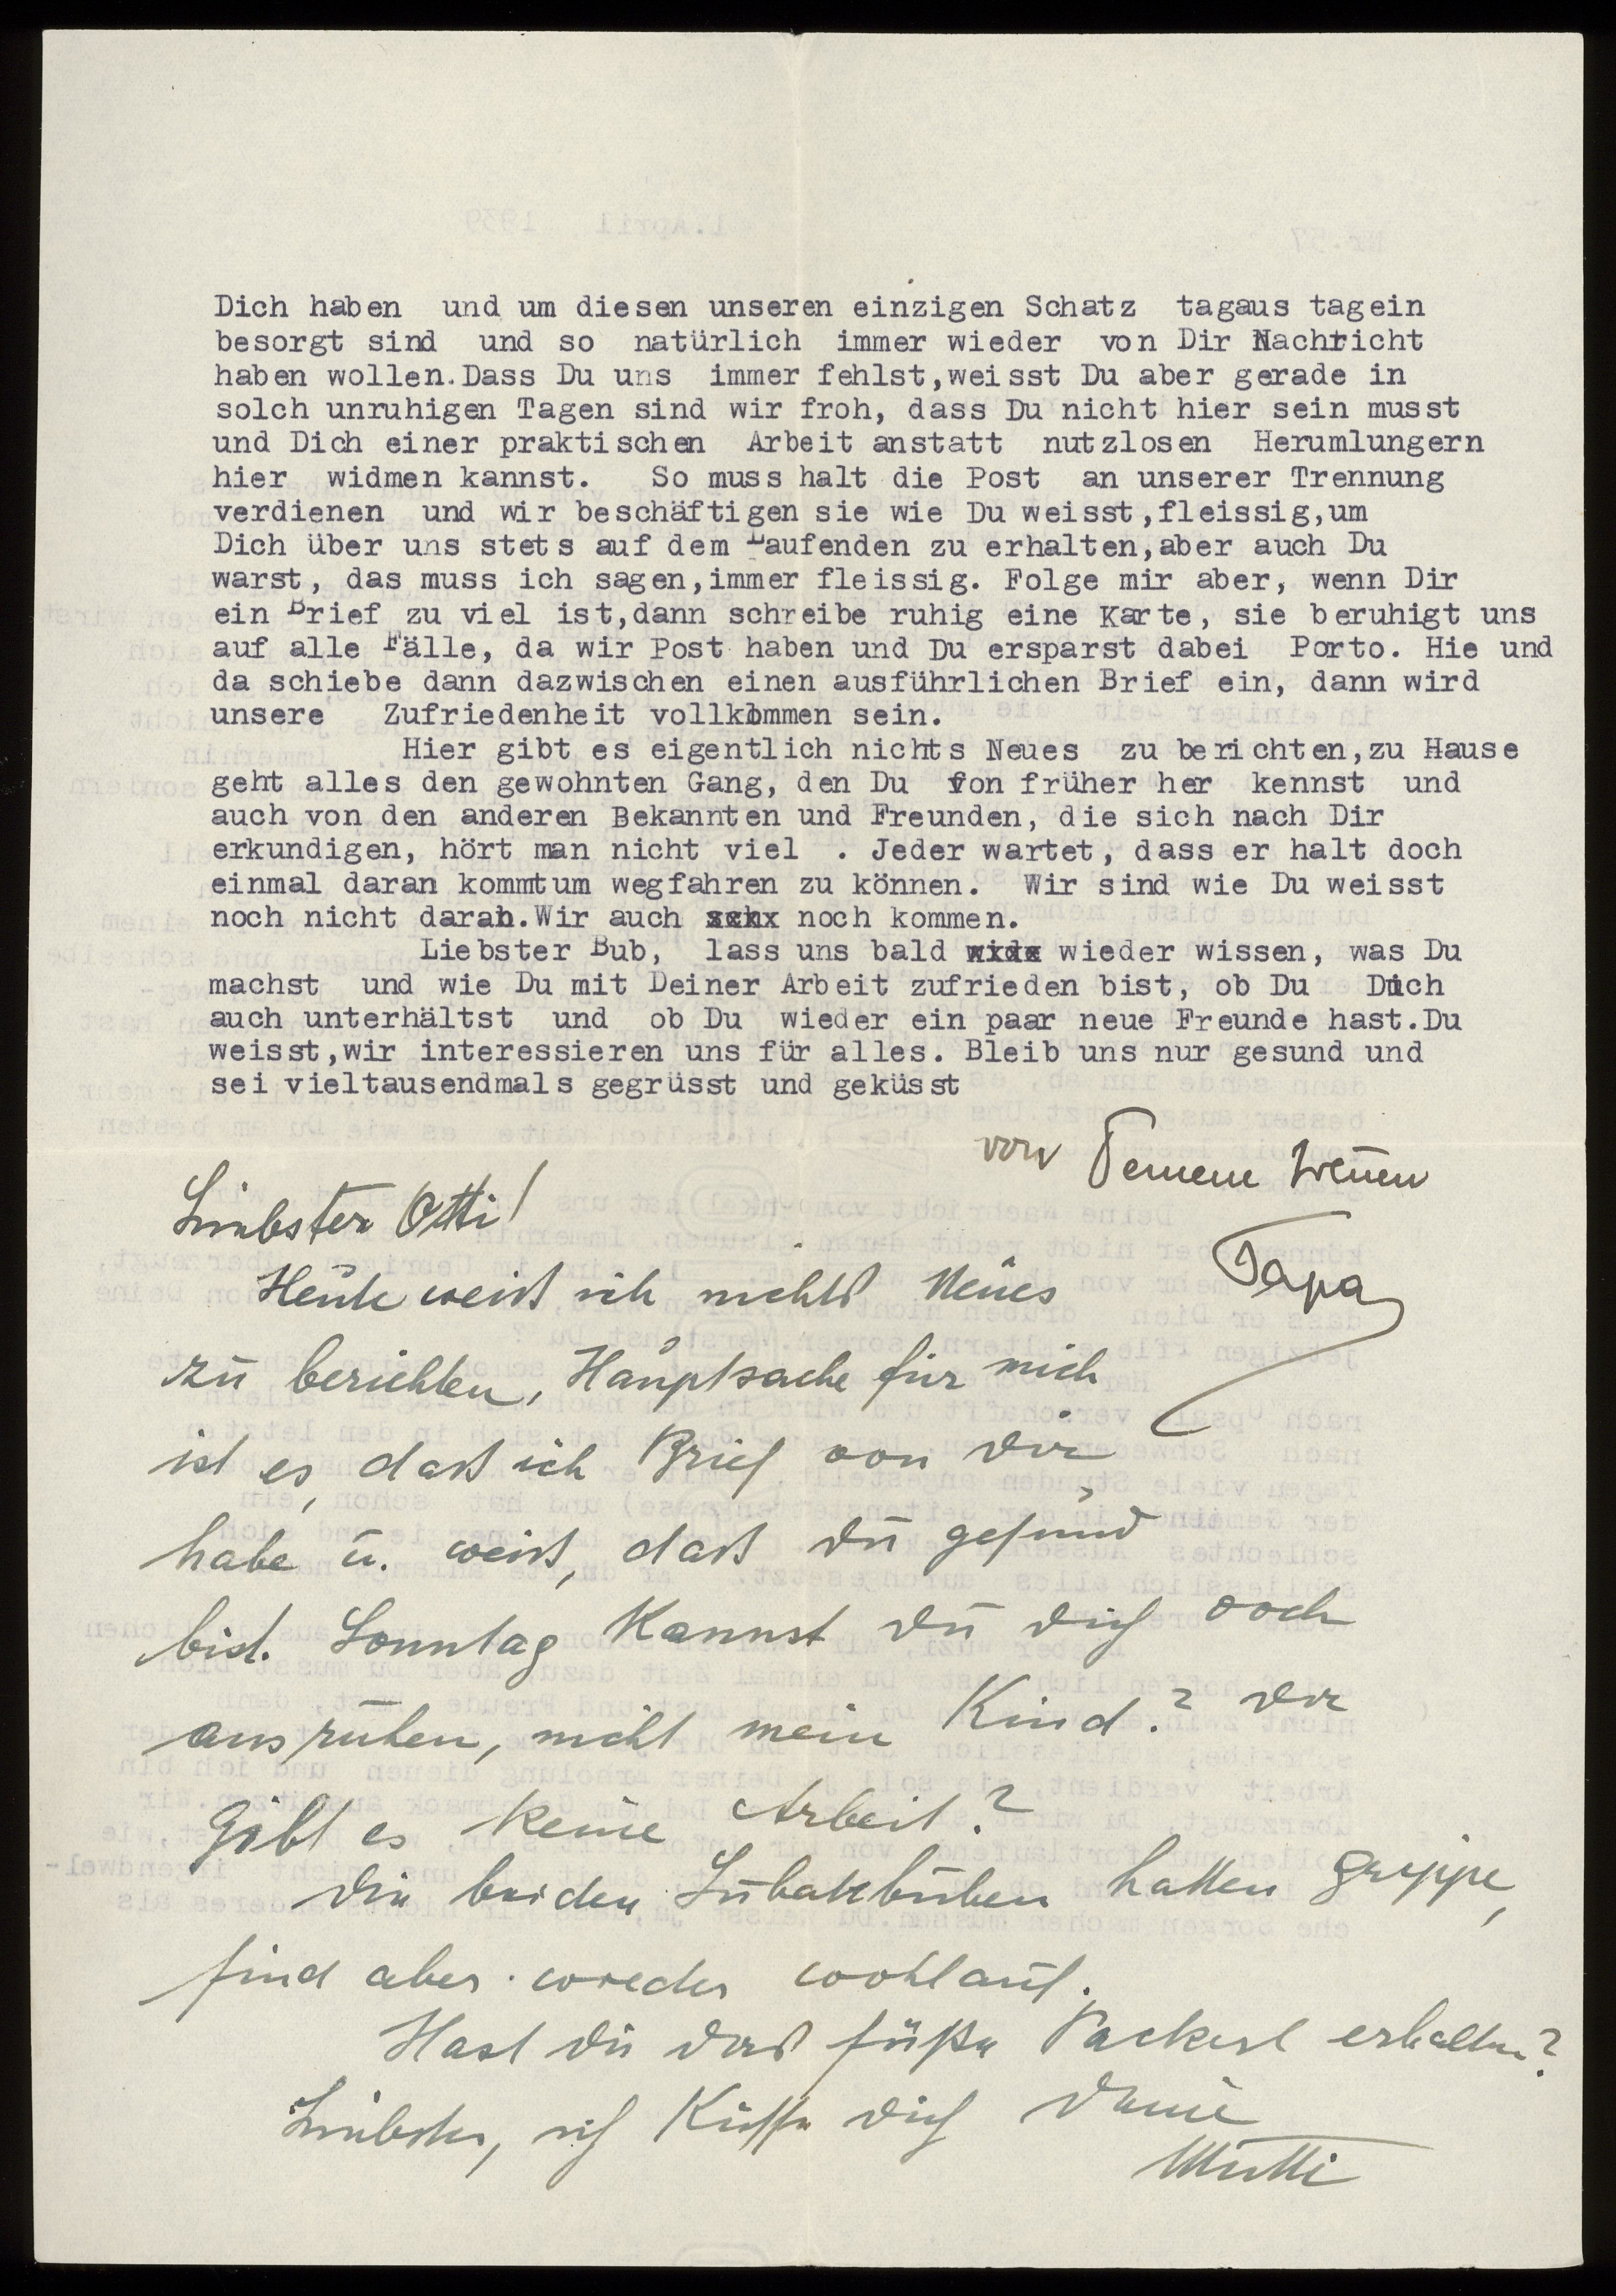 Dich haben und um diesen unseren einzigen Schatz tagaus tagein
besorgt sind und so natürlich immer wieder von Dir Nachricht
haben wollen.Dass Du uns immer fehlst,weisst Du aber gerade in
solch unruhigen Tagen sind wir froh, dass Du nicht hier sein musst
und Dich einer praktischen Arbeit anstatt nutzlosen Herumlungern
hier widmen kannst. So muss halt die Post an unserer Trennung
verdienen und wir beschäftigen sie wie Du weisst,fleissig,um
Dich über uns stets auf dem Laufenden zu erhalten,aber auch Du
warst, das muss ich sagen,immer fleissig. Folge mir aber, wenn Dir
ein Brief zu viel ist,dann schreibe ruhig eine Karte, sie beruhigt uns
auf alle Fälle, da wir Post haben und Du ersparst dabei Porto. Hie und
da schiebe dann dazwischen einen ausführlichen Brief ein, dann wird
unsere Zufriedenheit vollkommen sein.
Hier gibt es eigentlich nichts Neues zu berichten,zu Hause
geht alles den gewohnten Gang, den Du von früher her kennst und
auch von den anderen Bekannten und Freunden, die sich nach Dir
erkundigen, hört man nicht viel . Jeder wartet, dass er halt doch
einmal daran kommtum wegfahren zu können. Wir sind wie Du weisst
noch nicht daran.Wir auch noch kommen.
Liebster Bub, lass uns bald wieder wissen, was Du
machst und wie Du mit Deiner Arbeit zufrieden bist, ob Du Dich
auch unterhältst und ob Du wieder ein paar neue Freunde hast.Du
weisst,wir interessieren uns für alles. Bleib uns nur gesund und
sei vieltausendmals gegrüsst und geküsst
von Deinem treuen
Papa
Liebster Otti!
Heute weiß ich nichts Neues
zu berichten, Hauptsache für mich
ist es, daß ich Brief von Dir
habe u. weiß, daß Du gesund
bist. Sonntag kannst Du Dich doch
ausruhen, nicht mein Kind? Da
gibt es keine Arbeit?
Die beiden hatten Grippe,
sind aber wieder wohlauf.
Hast Du das süße Packerl erhalten?
Liebster, ich küsse Dich Deine
Mutti